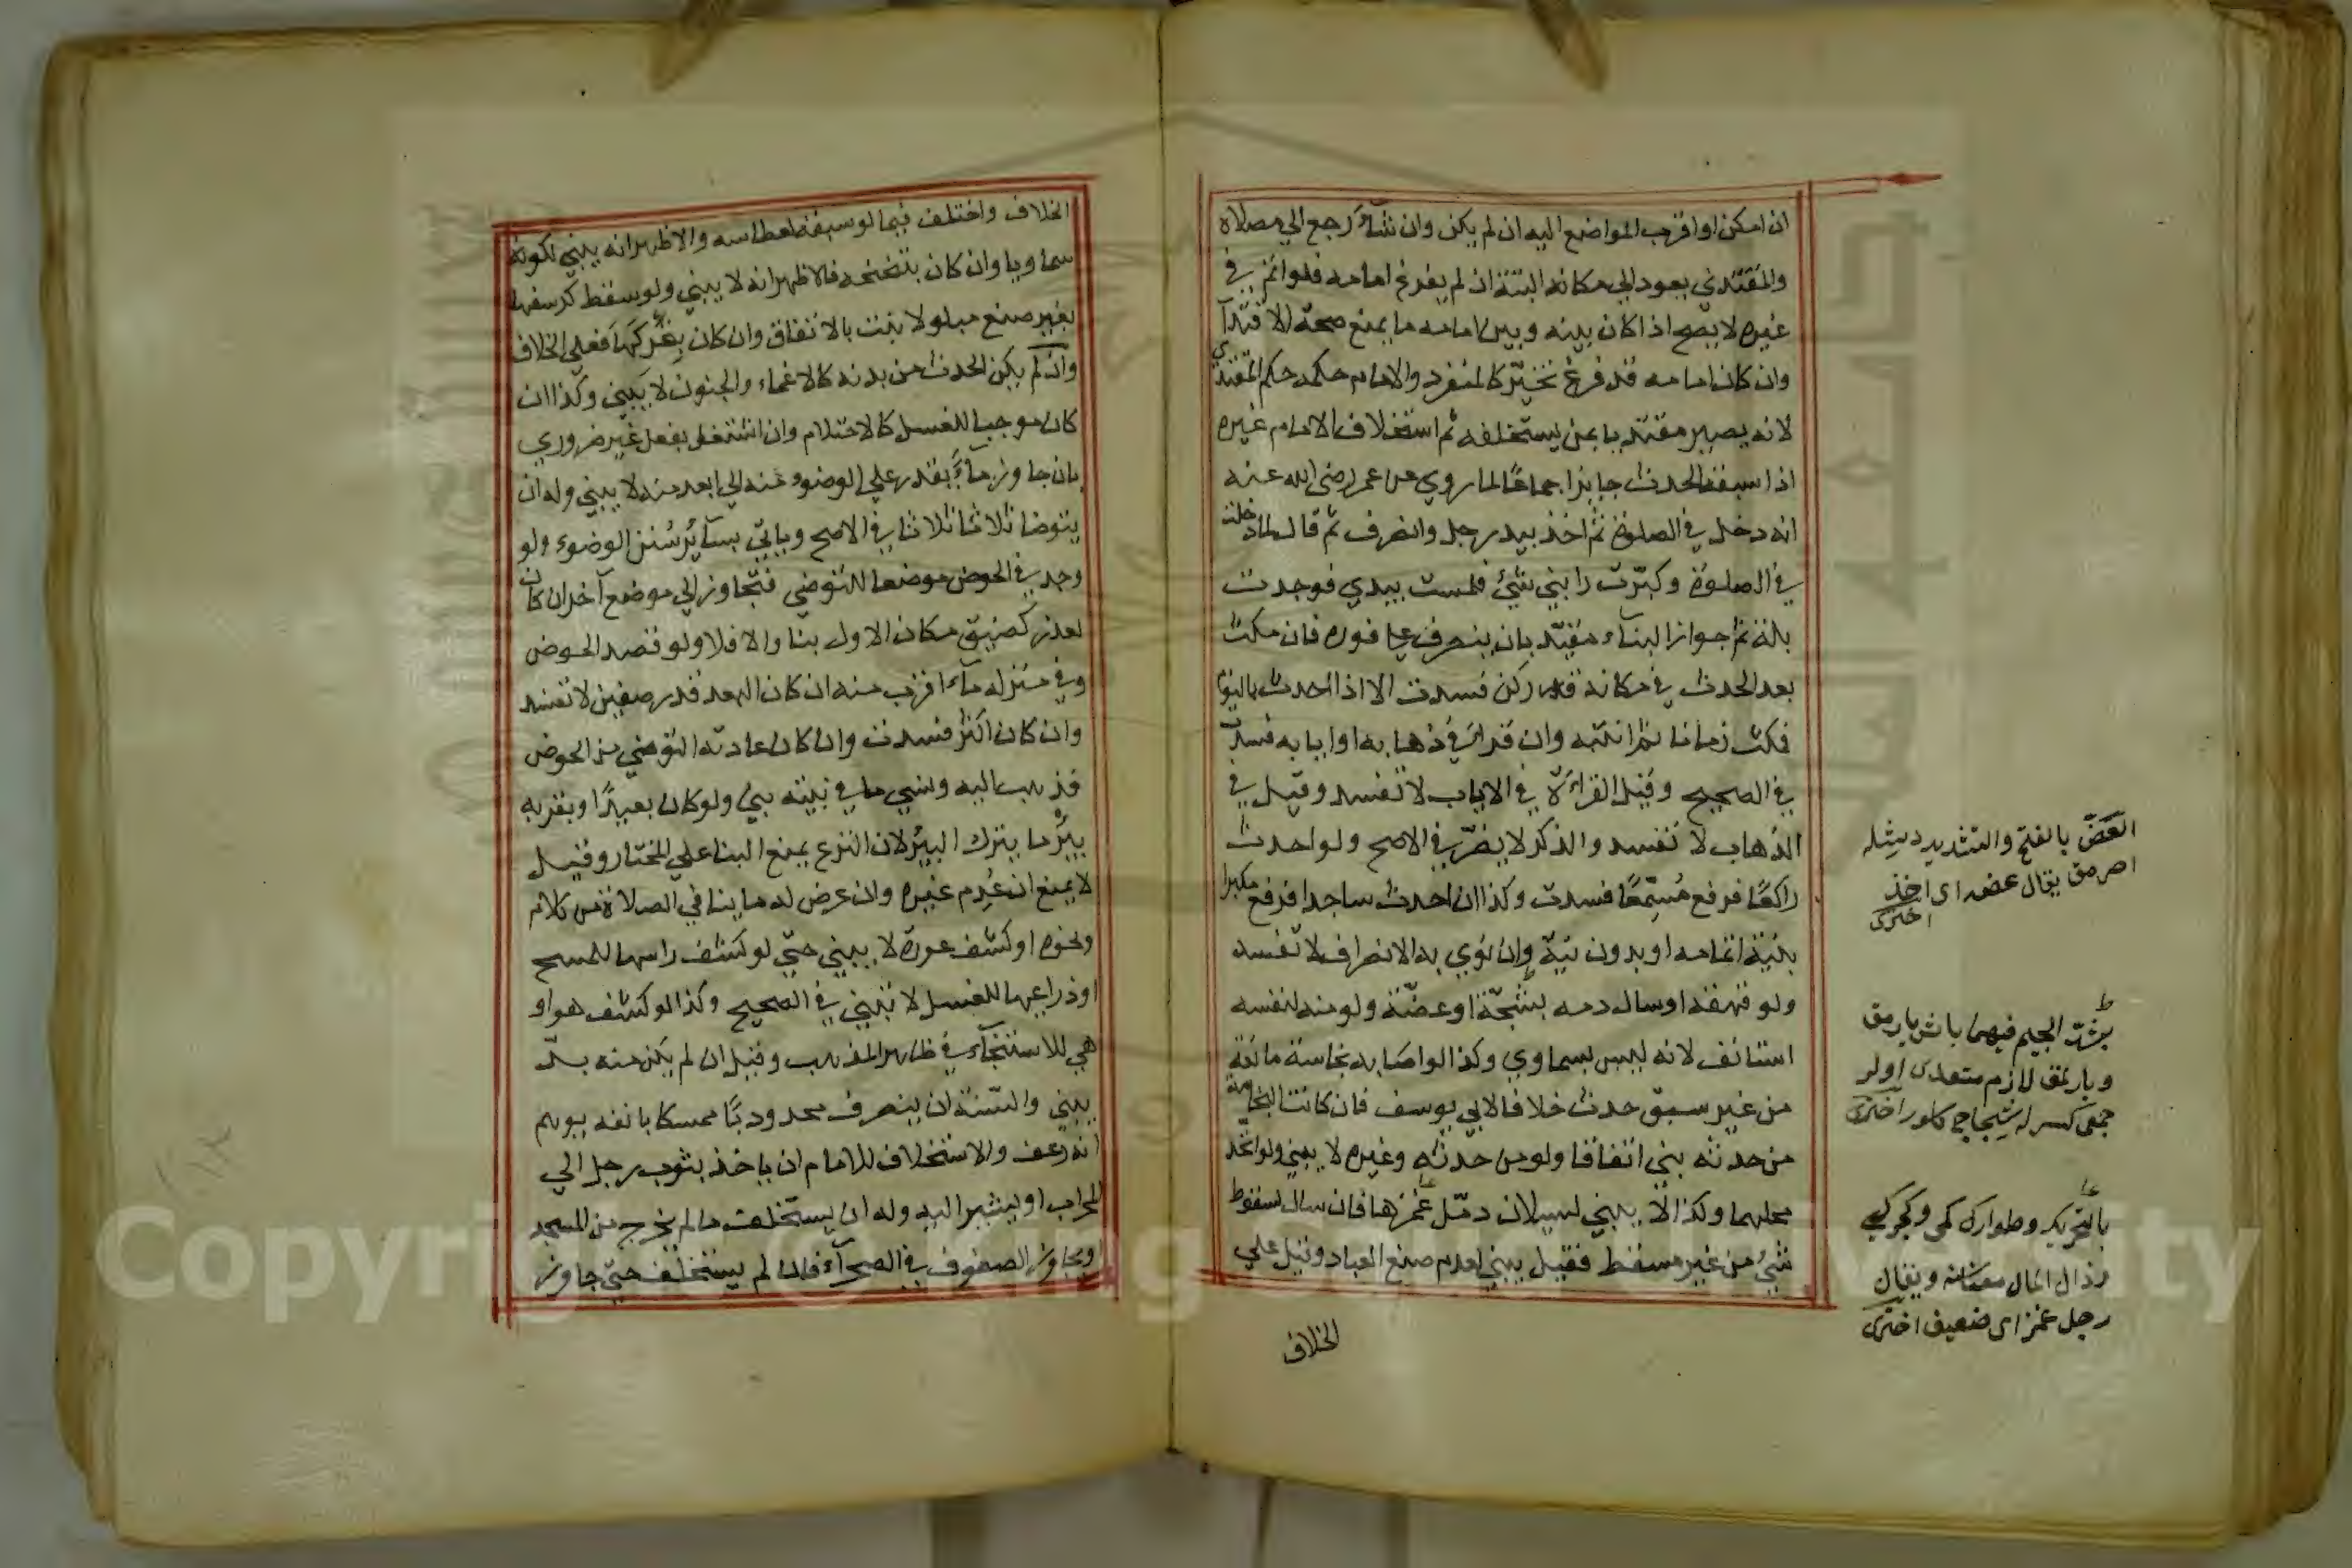 ان امكن او اقرب المواضع اليه ان لم يكن وان شآء رجع الي مصلاه
والمقتدي يعود الي مكانه البتة ان لم يفرغ امامه فلو اتم في
غيره لا يصح اذا كان بينه وبين امامه ما يمنع صحة الاقتدآ
وان كان امامه قد فرغ تخيّر كالمنفرد والامام حكمه حكم المقتدي
لانه يصير مقتديا بمن يستخلفه ثم استخلاف الامام غيره
اذا سبقه الحدث جايز اجماعًا لما روي عن عمر رضي الله عنه
انه دخل في الصلوة ثم اخذ بيد رجل وانصرف ثم قال لما دخلت
في الصلوة وكبّرت رابني شيئ فلمست بيدي فوجدت
بلة ثم جواز البنآء مقيّد بان ينصرف علي فوره فان مكث
بعد الحدث في مكانه قدر ركن فسدت الا اذا احدث بالنوم
فمكث زمانا ثم انتبه وان قرا في ذهابه او ايابه فسدت
في الصحيح وقيل القراءة في الاياب لا تفسد وقيل في
الذهاب لا تفسد والذكر لا يضرّ في الاصح ولو احدث
راكعًا فرفع مُسَمِّعًا فسدت وكذا ان احدث ساجدا فرفع مكبرا
بنيّة اتمامه او بدون نيّة وان نوي به الانصراف لا تفسد
ولو قهقه او سال دمه بشجّة او عضّة ولو منه لنفسه
استانف لانه ليس بسماوي وكذا لو اصابه نجاسة مانعة
من غير سبق حدث خلافا لابي يوسف فان كانت النجاسة
من حدثه بني اتفاقا ولو من حدثه وغيره لا يبني ولو اتحد
محلهما وكذا لا يبني لسيلان دمّل غمزها فان سال لسقوط
شيئ من غير مسقط فقيل يبني لعدم صنع العباد وقيل علي
الخلاف
العَضّ بالفتح والتشديد ديشله
اصرمق يقال عضه اى اخذ
اخترى
ط
بشدّ الجيم فيهما باش يارمق
ويارلمق لازم متعدى اولر
جمعى كسرله شجاج كلور اخترى
بالتحريك وطوارك كمى وكجركيى
رذال المال معناسنه ويقال
رجل غمز اى ضعيف اخترى
الخلاف واختلف فيما لو سبقه لعطاسه والاظهر انه يبني لكونه
سماويا وان كان بتنحنحه فالاظهر انه لا يبني ولو سقط كرسفها
بغير صنع مبلولا بنت بالاتفاق وان كان بتحريكها فعلي الخلاف
وان لم يكن الحدث من بدنه كالاغماء والجنون لا يبني وكذا ان
كان موجبا للغسل كالاحتلام وان اشتغل بفعل غير ضروري
بان جاوز مآءً يقدر علي الوضوء منه الي ابعد منه لا يبني وله ان
يتوضا ثلاثا ثلاثا في الاصح وياتي بسآئر سُنن الوضوء ولو
وجد في الحوض موضعا للتوضي فتجاوز الي موضع آخر ان كان
لعذر كضيق مكان الاول بنا والا فلا ولو قصد الحوض
وفي منزله مآء اقرب منه ان كان البعد قدر صفين لا تفسد
وان كان اكثر فسدت وان كان عادته التوضي من الحوض
فذهب اليه ونسي ما في بيته بني ولو كان بعيدًا وبقربه
بيرٌ ما يترك البير لان النزع يمنع البنا علي المختار وقيل
لا يمنع ان عُدِم غيره وان عرض له ما ينافي الصلاة من كلام
ونحوه او كشف عورة لا يبني حتي لو كشف راسها للمسح
او ذراعيها للغسل لا تبني في الصحيح وكذا لو كشف هو او
هي للاستنجآء في ظاهر المذهب وقيل ان لم يكن منه بدّ
يبني والسّنة ان ينصرف محدودبًا ممسكا بانفه يوهم
انه رعف والاستخلاف للامام ان ياخذ بثوب رجل الي
المحراب او يشير اليه وله ان يستخلف ما لم يخرج من المسجد
او يجاوز الصفوف في الصحرآء فان لم يستخلف حتي جاوز
Copyright © King Saud University